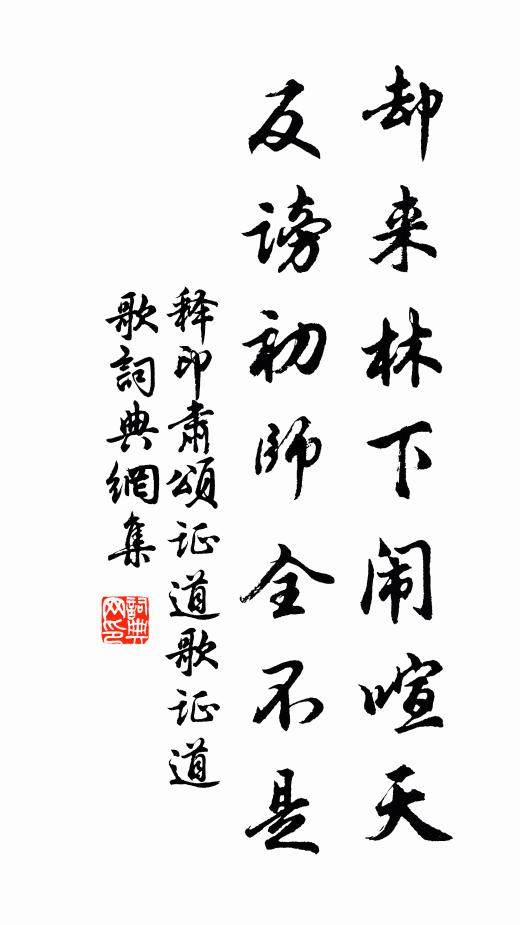 却来林下闹喧天
反谤初师全不是
释印肃颂证道歌证道
歌词典網集
詞典
网印